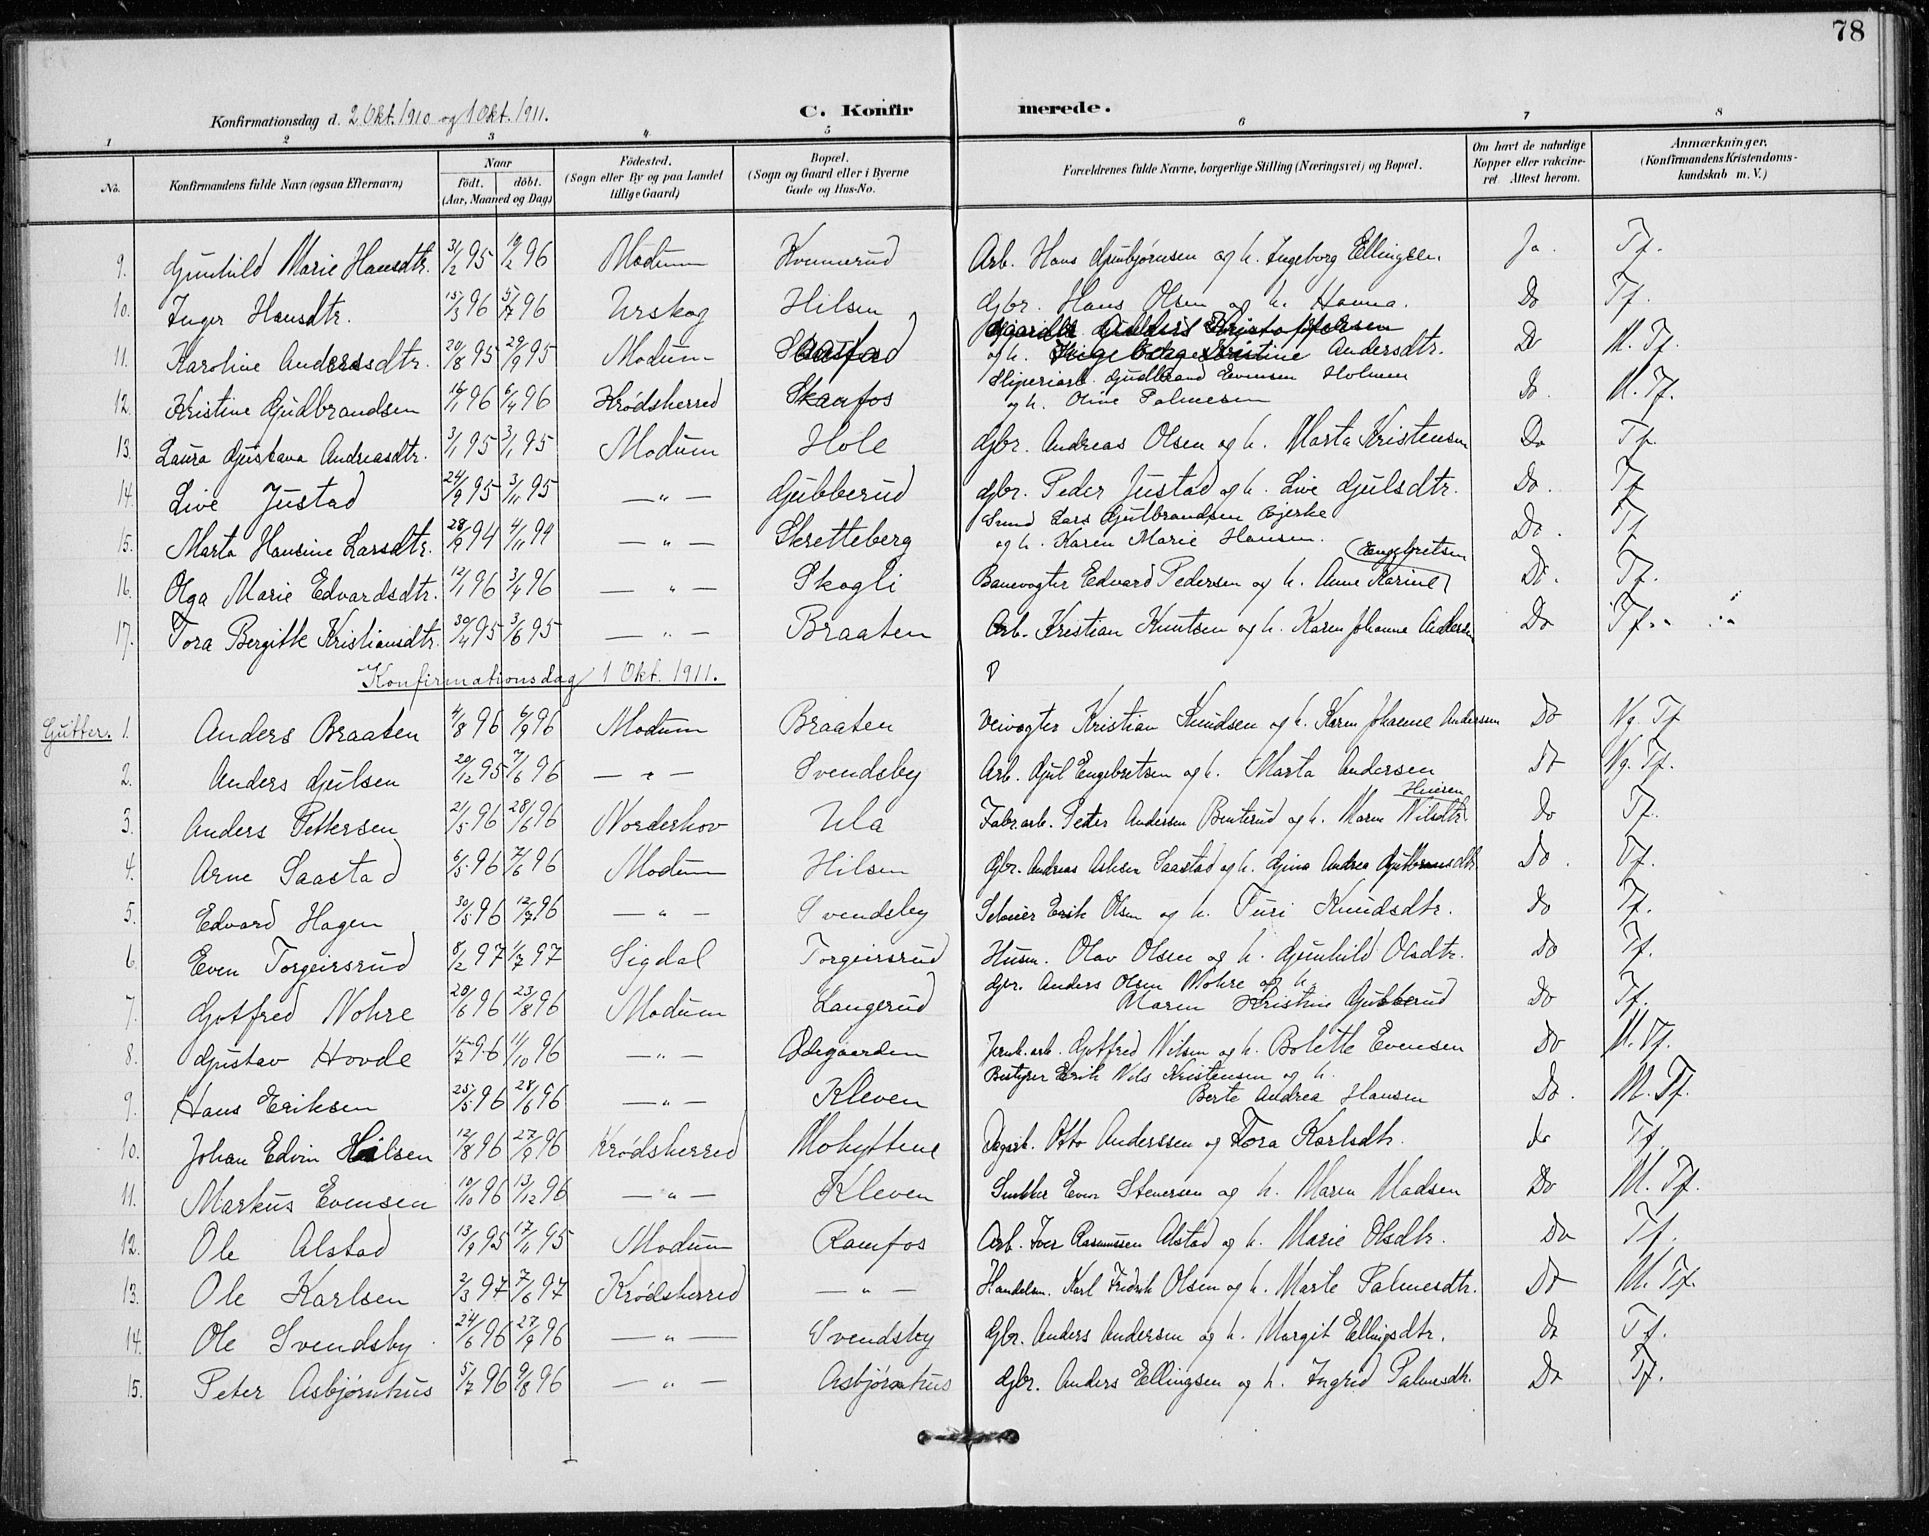 78
Konfirmationsdag d. 2 Okt. 1910 og 1 Okt. 1911. C. Konfirmerede.
1 2 3 4 5 6 7 8
No. Konfirmandens fulde Navn (ogsaa Efternavn) Naar födt. döbt. (Aar, Maaned og Dag) Födested. (Sogn eller By og paa Landet tillige Gaard) Bopæl. (Sogn og Gaard eller i Byerne Gade og Hus-No. Forældrenes fulde Navne, borgerlige Stilling (Næringsvei) og Bopæl. Om havt de naturlige Kopper eller vakcineret. Attest herom. Anmærkninger. (Konfirmandens Kristendomskundskab m. V.)
9. Gunhild Marie Hansdtr. 31/12 95 19/2 96 Modum Kvennerud Arb. Hans Gunbjørnsen og h. Ingeborg Ellingsen. Ja. Tf.
10. Inger Hansdtr. 15/3 96 5/7 96 Urskog Hilsen Gbr. Hans Olsen og h. Hanna. Do Tf.
11. Karoline Andersdtr. 20/8 95 29/9 95 Modum Saastad Kristoffersen
og h. Kristine Andersdtr. Do M. Tf.
12. Kristine Gudbrandsen 16/1 96 6/4 96 Krødsherred Skaafos Sliperiarb. Gudbrand Evensen Holmen
og h. Oline Palmesen Do. M. Tf.
13. Laura Gustava Andreasdtr. 3/1 95 3/1 95 Modum Hole Gbr. Andreas Olsen og h. Marta Kristensen Do Tf.
14. Live Justad 24/9 95 3/11 95 — " — Gubberud Gbr. Peder Justad og h. Live Gulsdtr. Do. Tf
15. Marta Hansine Larsdtr. 28/9 94 4/11 94 — " — Skretteberg Smed Lars Gutbrandsen Bjerke
og h. Karen Marie Hansen. Do. Tf
16. Olga Marie Edvardsdtr. 12/1 96 3/4 96 — " — Skogli Banevogter Edvard Pedersen og h. Anne Karine (Engebretsen Do. Tf.
17. Tora Bergitte Kristiansdtr. 30/4 95 3/6 95 — " — Braaten Arb. Kristian Knutsen og h. Karen Johanne Andersen Do Tf.
Konfirmationsdag 1 Okt. 1911.
Gutter. 1. Anders Braaten 4/8 96 6/9 96 Modum Braaten Veivogter Kristian Knudsen og h. Karen Johanne Andersen Do Ng. Tf
2. Anders Gulsen 29/12 95 7/6 96 — " — Svendsby Arb. Gul Engebretsen og h. Marta Andersen Do Ng. Tf.
3. Anders Pettersen 21/5 96 28/6 96 Norderhov Ula Fabr.arb. Peder Andersen Benterud og h. Maren Nilsdtr. Do Tf.
4. Arne Saastad 6/5 96 7/6 96 Modum Hilsen Gbr. Andreas Saastad og h. Gina Andrea Gutbransdtr Do. Tf.
5. Edvard Hagen 30/5 96 12/7 96 — " — Svendsby Erik Olsen og h. Turi Knudsdtr. Do Tf.
6. Even Torgeirsrud 8/2 97 1/7 97 Sigdal Torgeirsrud Husm. Olav Olsen og h. Gunhild Olsdtr. Do Tf.
7. Gotfred Nohre 20/6 96 23/8 96 Modum Langerud Gbr. Anders Olsen Nohre og h.
Maren Kristine Gubberud Do Tf.
8. Gustav Hovde 15/7 96 11/10 96 — " — Ødegaarden Jernb.arb. Gotfred Nilsen og h. Bolette Evensen Do M. Tf.
9. Hans Eriksen 25/5 96 28/6 96 — " — Kleven Bestyrer Erik Nils Kristensen og h.
Berte Andrea Hansen Do. M. Tf.
10. Johan Edvin Hilsen 12/8 96 27/9 96 Krødsherred Mohyttene Dagarb. Otto Anderssen og Tora Karlsdtr. do Tf.
11. Markus Evensen 10/10 96 13/12 96 — " — Kleven Snekker Even Stenersen og h. Maren Madsen Do M. Tf.
12. Ole Alstad 13/9 95 17/11 95 Modum Ramfos Arb. Iver Rasmussen Alstad og h. Marie Olsdtr. Do Tf.
13. Ole Karlsen 2/3 97 7/6 97 Krødsherred — " — Handelsm. Karl Fridrik Olsen og h. Marte Palmesdtr. Do M. Tf.
14. Ole Svendsby 24/6 96 27/9 96 — " — Svendsby Gbr. Anders Andersen og h. Margit Ellingsdtr. Do Tf.
15. Peter Asbjørnhus 5/7 96 9/8 96 — " — Asbjørnhus Gbr. Anders Ellingsen og h. Ingrid Palmesdtr. Do Tf.